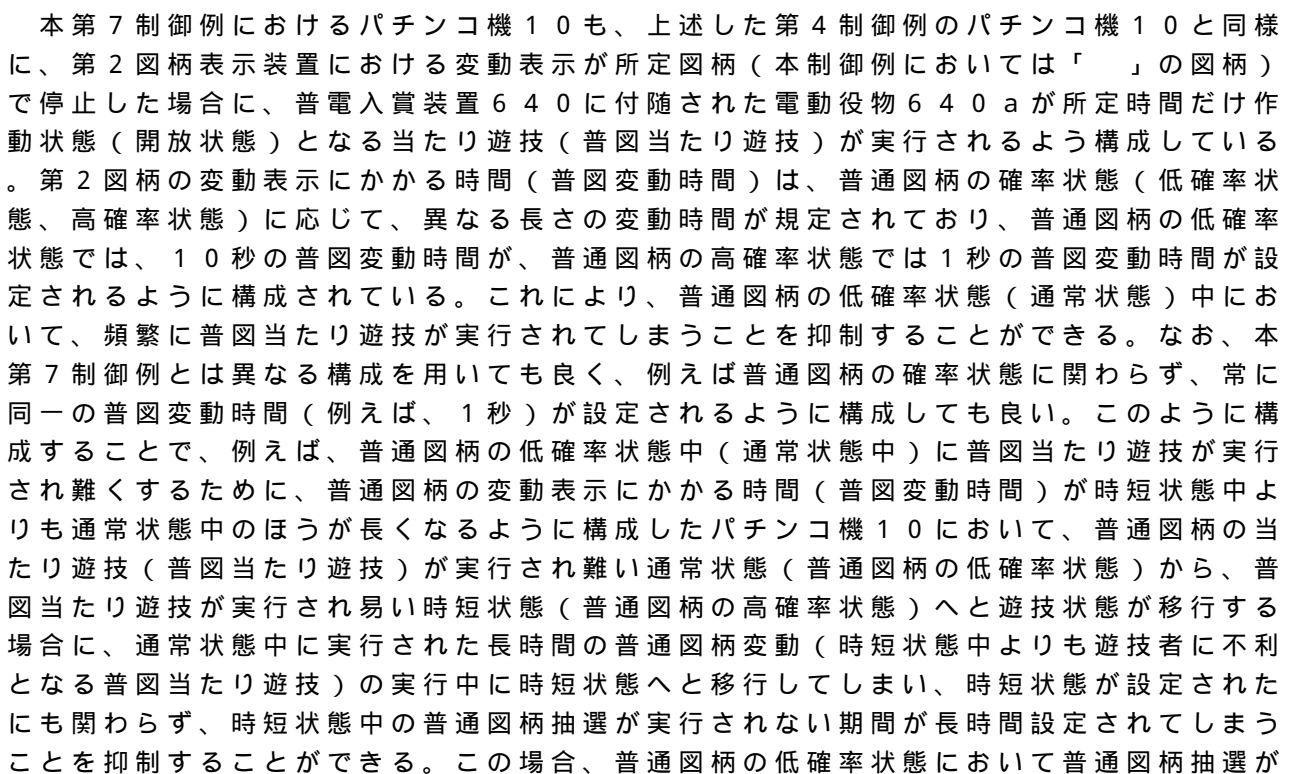 本第７制御例におけるパチンコ機１０も、上述した第４制御例のパチンコ機１０と同様
に、第２図柄表示装置における変動表示が所定図柄（本制御例においては「　」の図柄）
で停止した場合に、普電入賞装置６４０に付随された電動役物６４０ａが所定時間だけ作
動状態（開放状態）となる当たり遊技（普図当たり遊技）が実行されるよう構成している
。第２図柄の変動表示にかかる時間（普図変動時間）は、普通図柄の確率状態（低確率状
態、高確率状態）に応じて、異なる長さの変動時間が規定されており、普通図柄の低確率
状態では、１０秒の普図変動時間が、普通図柄の高確率状態では１秒の普図変動時間が設
定されるように構成されている。これにより、普通図柄の低確率状態（通常状態）中にお
いて、頻繁に普図当たり遊技が実行されてしまうことを抑制することができる。なお、本
第７制御例とは異なる構成を用いても良く、例えば普通図柄の確率状態に関わらず、常に
同一の普図変動時間（例えば、１秒）が設定されるように構成しても良い。このように構
成することで、例えば、普通図柄の低確率状態中（通常状態中）に普図当たり遊技が実行
され難くするために、普通図柄の変動表示にかかる時間（普図変動時間）が時短状態中よ
りも通常状態中のほうが長くなるように構成したパチンコ機１０において、普通図柄の当
たり遊技（普図当たり遊技）が実行され難い通常状態（普通図柄の低確率状態）から、普
図当たり遊技が実行され易い時短状態（普通図柄の高確率状態）へと遊技状態が移行する
場合に、通常状態中に実行された長時間の普通図柄変動（時短状態中よりも遊技者に不利
となる普図当たり遊技）の実行中に時短状態へと移行してしまい、時短状態が設定された
にも関わらず、時短状態中の普通図柄抽選が実行されない期間が長時間設定されてしまう
ことを抑制することができる。この場合、普通図柄の低確率状態において普通図柄抽選が